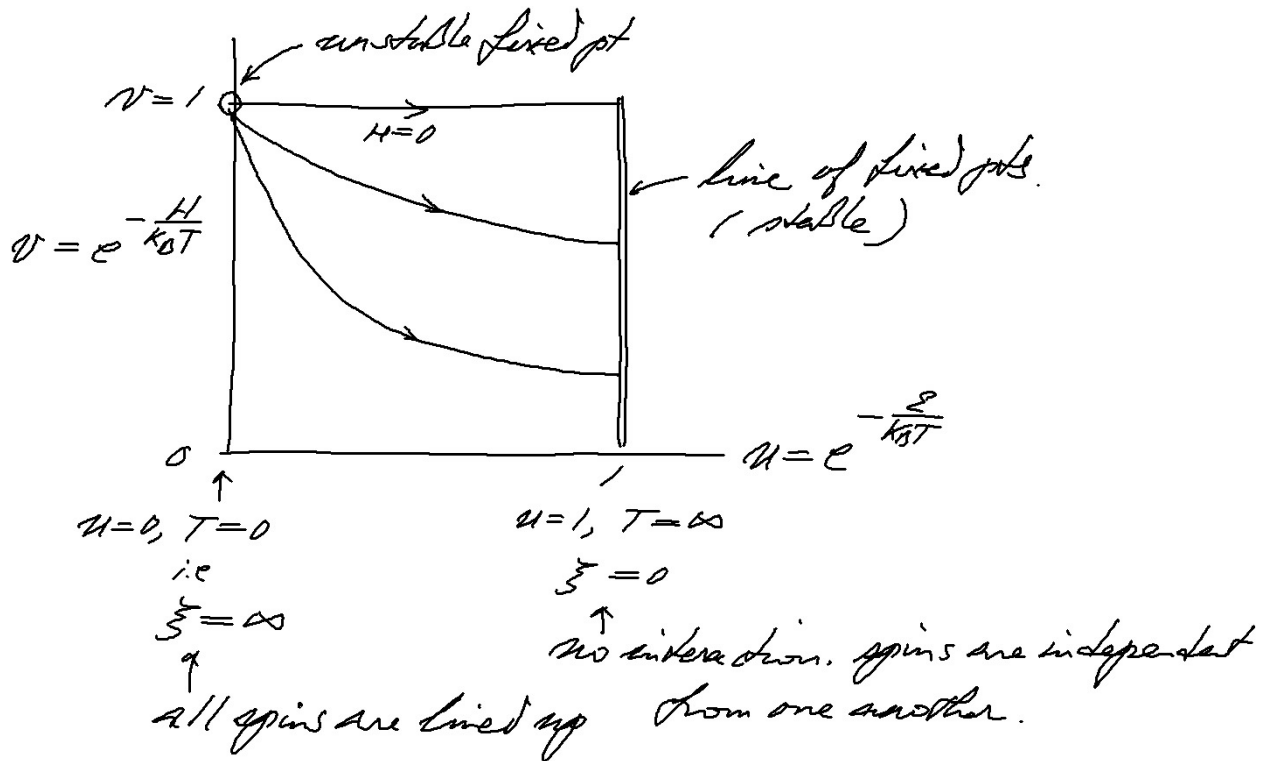 unstable fixed pt
v = 1
H=0
line of fixed pts.
(stable)
v = e^{-\frac{H}{k_B T}}
0
1
u = e^{-\frac{ε}{k_B T}}
u=0, T=0
i.e
ξ = ∞
all spins are lined up
u=1, T=∞
ξ = 0
no interaction. spins are independent
from one another.